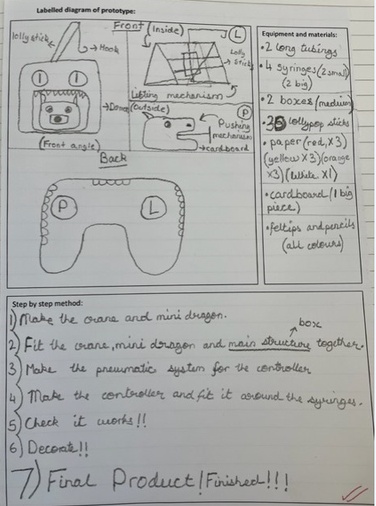 Labelled diagram of prototype:
Front
lolly stick
Hook
(Inside)
L
Lolly
Sticks
Lifting mechanism
Dome
(Outside)
P
Pushing
mechanism
cardboard
(Front angle)
Back
P
L
Equipment and materials:
• 2 long tubings
• 4 syringes (2 small)
(2 big)
• 2 boxes (medium)
lollypop sticks
• paper (red, x3)
(yellow x3) (orange
x3) (White x1)
• cardboard (1 big
piece)
• feltips and pencils
(all colours)
Step by step method:
1) Make the crane and mini dragon.
box
2) Fit the crane, mini dragon and main structure together.
3) Make the pneumatic system for the controller
4) Make the controller and fit it around the syringes.
5) Check it works!!
6) Decorate!!
7) Final Product/Finished!!!